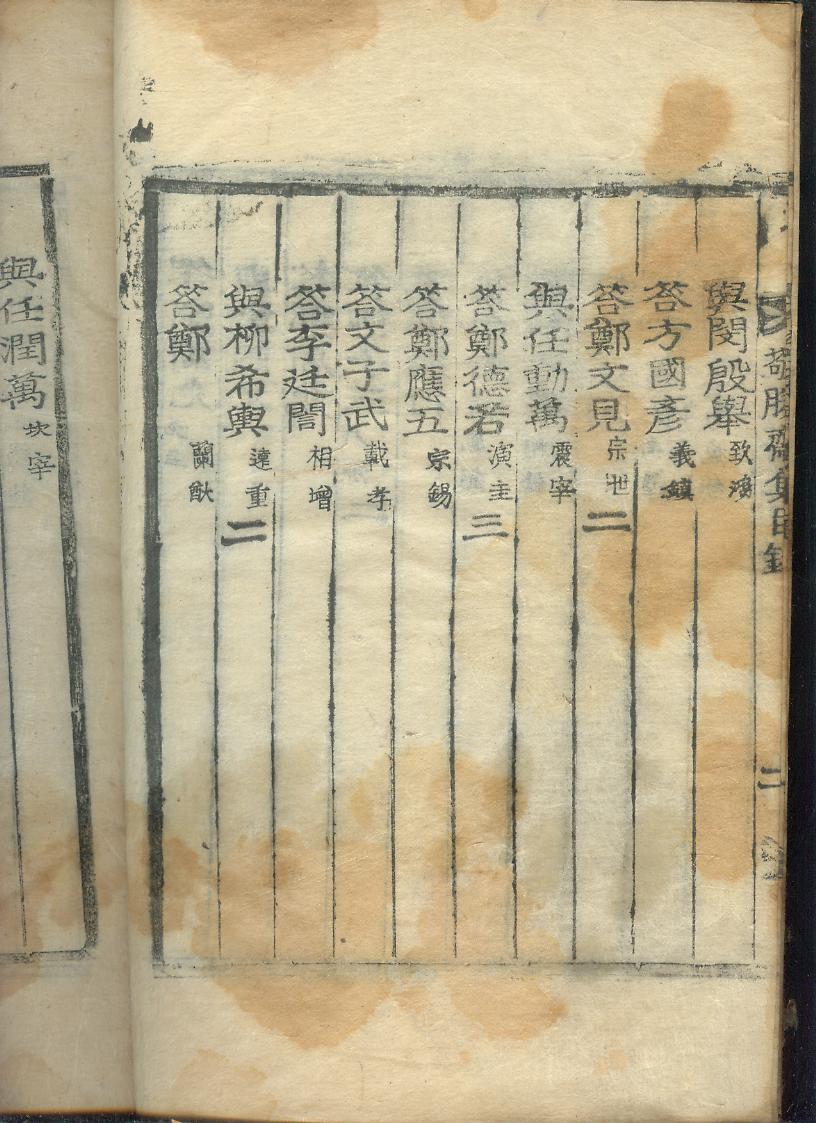 與閔殷擧 致鴻
答方國彥 義鎭
答鄭文見 宗丗 二
與任動萬 震宰
答鄭德若 演圭 三
答鄭應五 宗錫
答文子武 載孝
答李廷誾 相增
與柳希輿 遠重 二
答鄭 蘭猷
與任潤萬 坎宰
齋集目錄
二